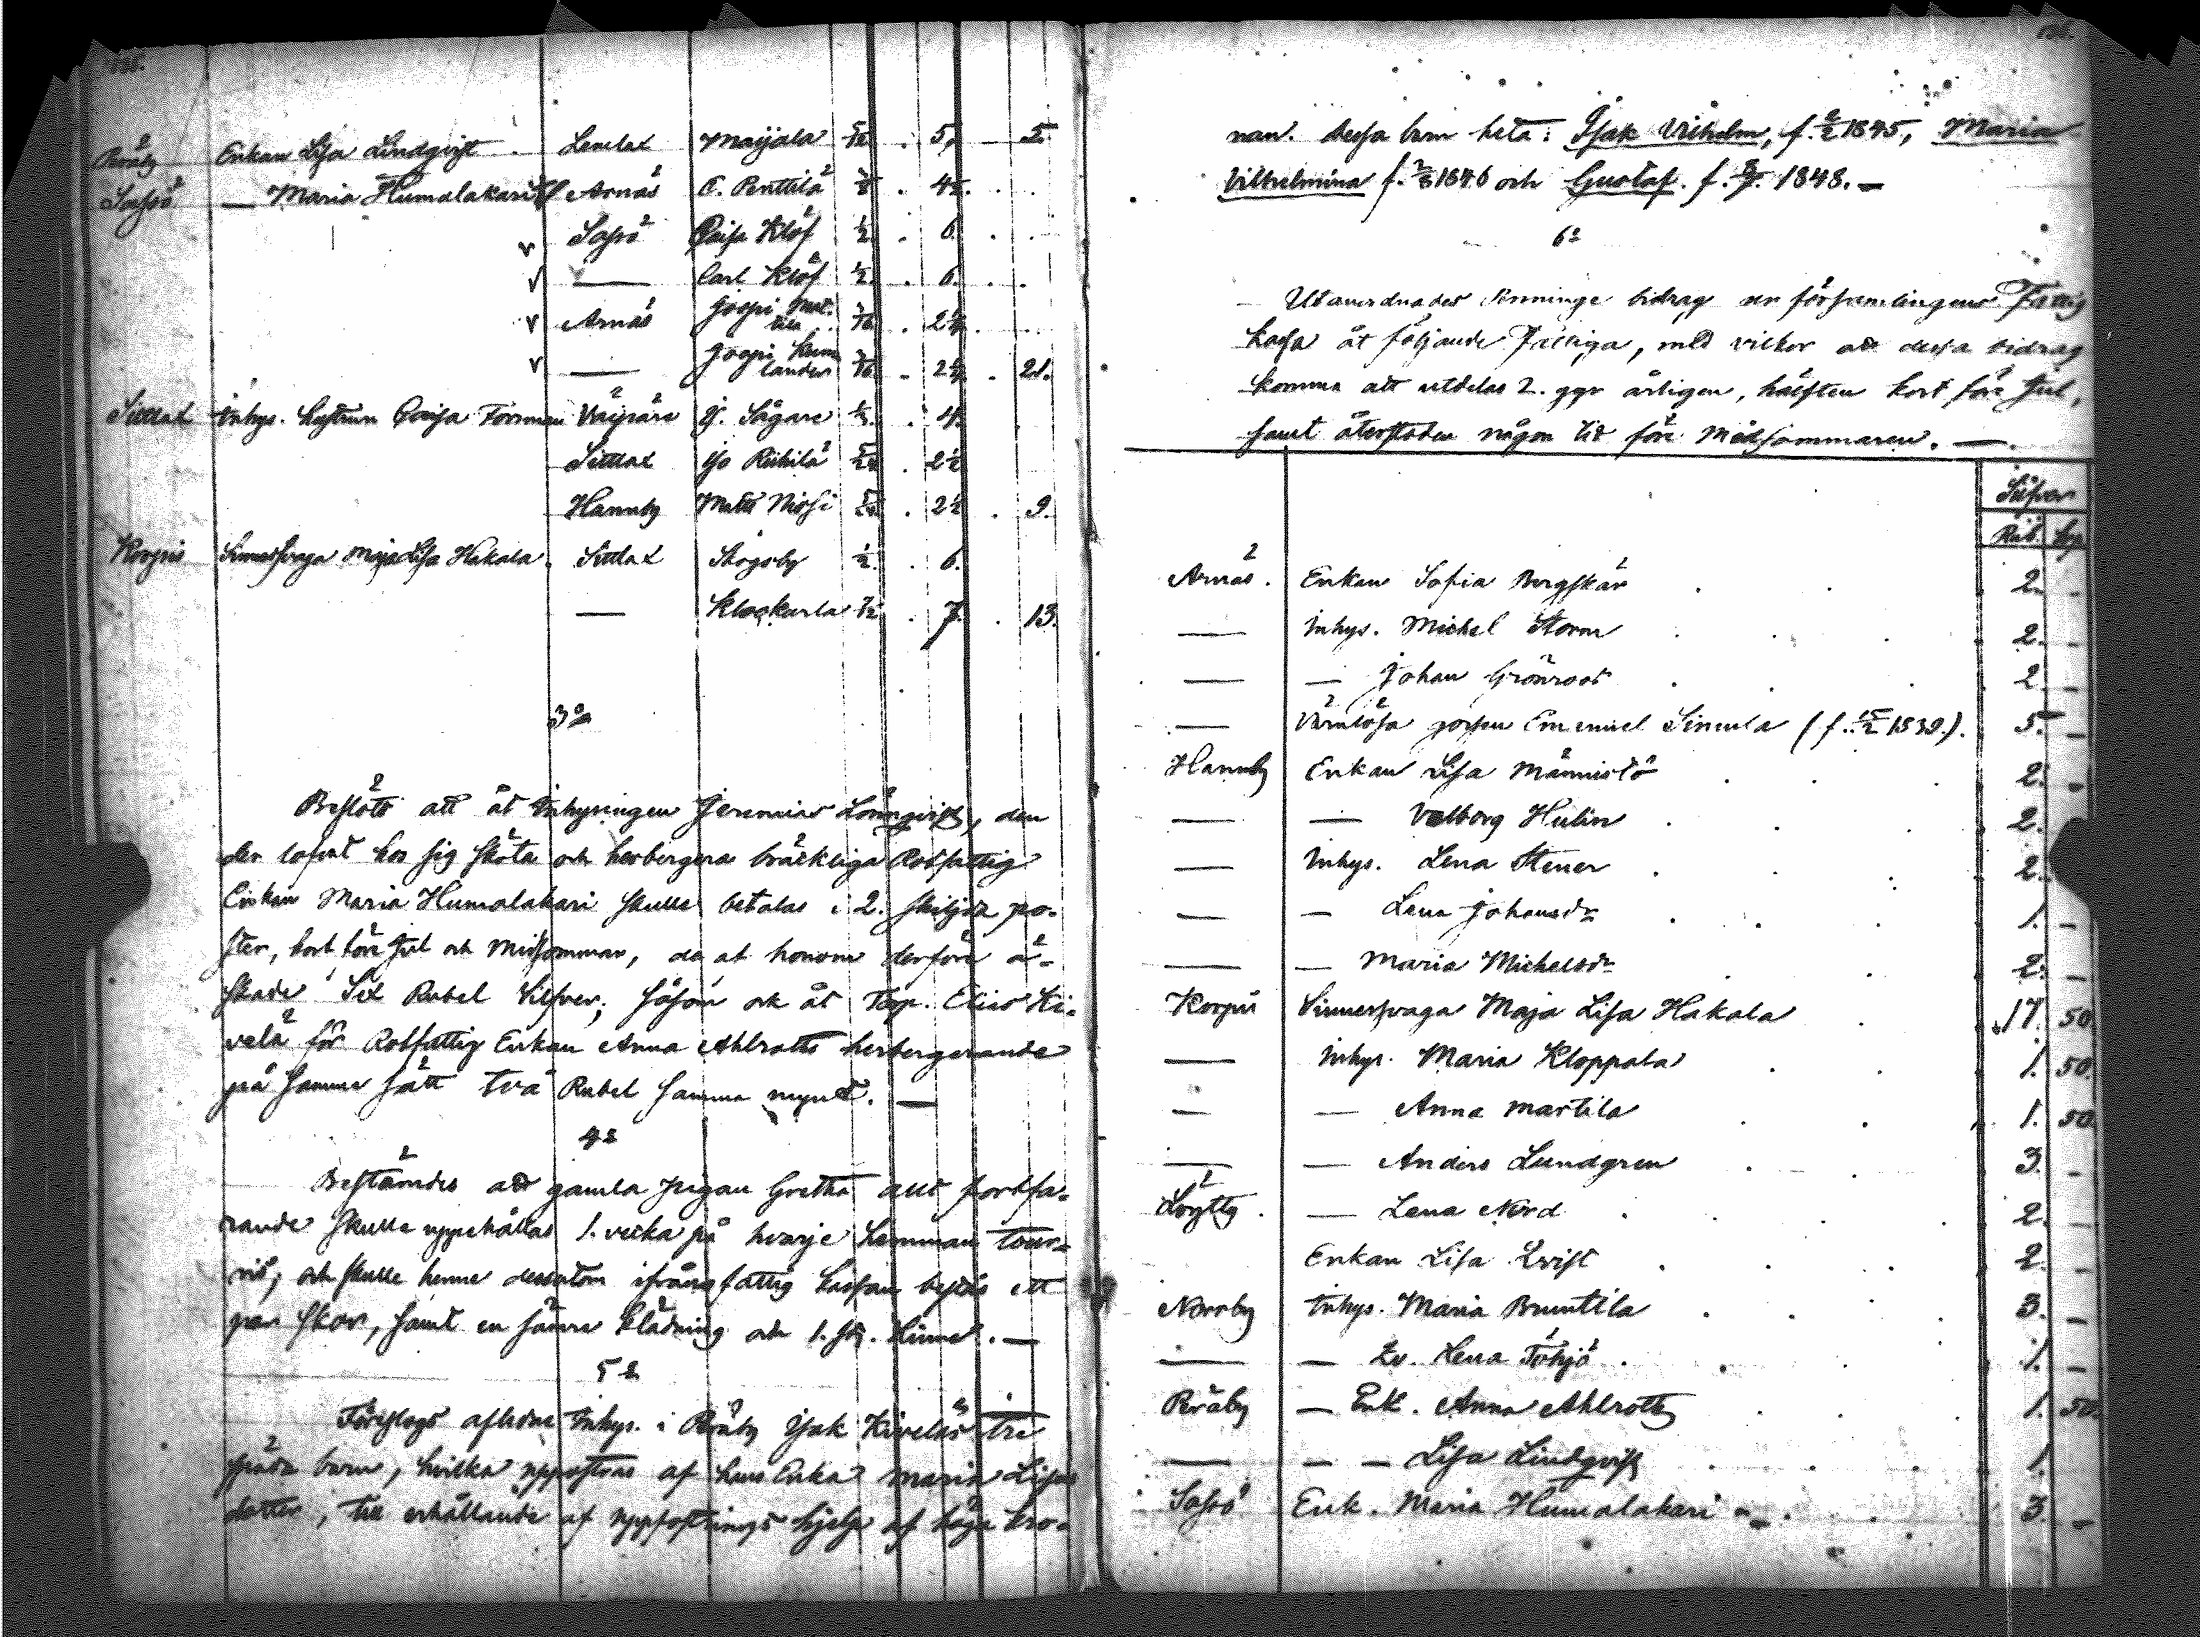 Bråby Enkan Lisa Lindqvist Lemlax Maijala 5/12 . 5. 5.
Sajsö — Maria Humalakari Arnäs C. Penttilä . 4½
Sajsö Caisa Klöf ½ . 6.
— Carl Klöf ½ . 6.
Arnäs Joopi . 2¼
— Joopi . 2¼ . 21.
Sittlax Inhys. Caisa Forsman Vaipäre J. Sågare . 4.
Sittlax 5/24 . 2½
Hannby Matts 5/24 . 2½ . 9.
Korpis Sinnessvaga Maja Lisa Hakala Sittlax Skogsby ½ . 6.
— Klockarla 7/12 . 7. . 13.
3º
Beslöts att åt Inhysingen Jeremias Lönnqvist, den
der lofvat hos sig sköta och herbergera bräckliga Rotfattig
Enkan Maria Humalakari skulle betalas i 2. skiljda po-
ster, kort före Jul och Midsommar, de af honom derföre ä-
skade Sex Rubel Silfver; såsom och åt Torp. Elias Ki-
velä för Rotfattig Enkan Anna Ahlroths herbergerande
på samma sätt två Rubel samma mynt. —
4º
Bestämdes att gamla pigan Gretha allt fortfa-
rande skulle uppehållas 1. vecka på hvarje Hemman tour-
vis, och skulle henne dessutom ifrån fattig kassan bestås ett
par skor, samt en sämre klädning och 1. st. —
5º
Föreslogs aflidne Inhys. i Bråby Isak Kiveläs tre
späda barn, hvilka uppfostras af hans Enka Maria Lisas
dotter, till erhållande af uppfostrings hjelp af höga kro-
nan. dessa barn heta: Isak Vilhelm, f. 1845, Maria
Vilhelmina f. 1846 och Gustaf. f. 1848. —
6º
Utanordnades Penninge bidrag ur församlingens Fattig
kassa åt följande Fattiga, med vilkor att dessa bidrag
komma att utdelas 2. ggr årligen, hälften kort före Jul,
samt återstoden någon tid före Midsommaren. —
Silfver
Rub. Kop
Arnäs. Enkan Sofia Bergskär 2. -
— Inhys. Michel Storm 2. -
— — Johan Grönroos 2 -
— Värnlösa gossen Emanuel Simula (f. 1839). 5. -
Hannby Enkan Lisa Männistö 2. -
— — Valborg Hulin 2. -
— Inhys. Lena Stener 2. -
— — Lena Johansdr 1. -
— — Maria Michelsdr 2. -
Korpis Sinnessvaga Maja Lisa Hakala 17. 50
— Inhys. Maria Kloppala 1. 50
— — Anna Martila 1. 50
— — Anders Lundgren 3. -
Löytty. — Lena Nord 2. -
Enkan Lisa Qvist 2. -
Norrby Inhys. Maria Bruntila 3. -
— — Lena Töhjö 1. -
Bråby — Enk. Anna Ahlroth 1. 50.
— — — Lisa Lindqvist 1.
Sajsö Enk. Maria Humalakari 3. -